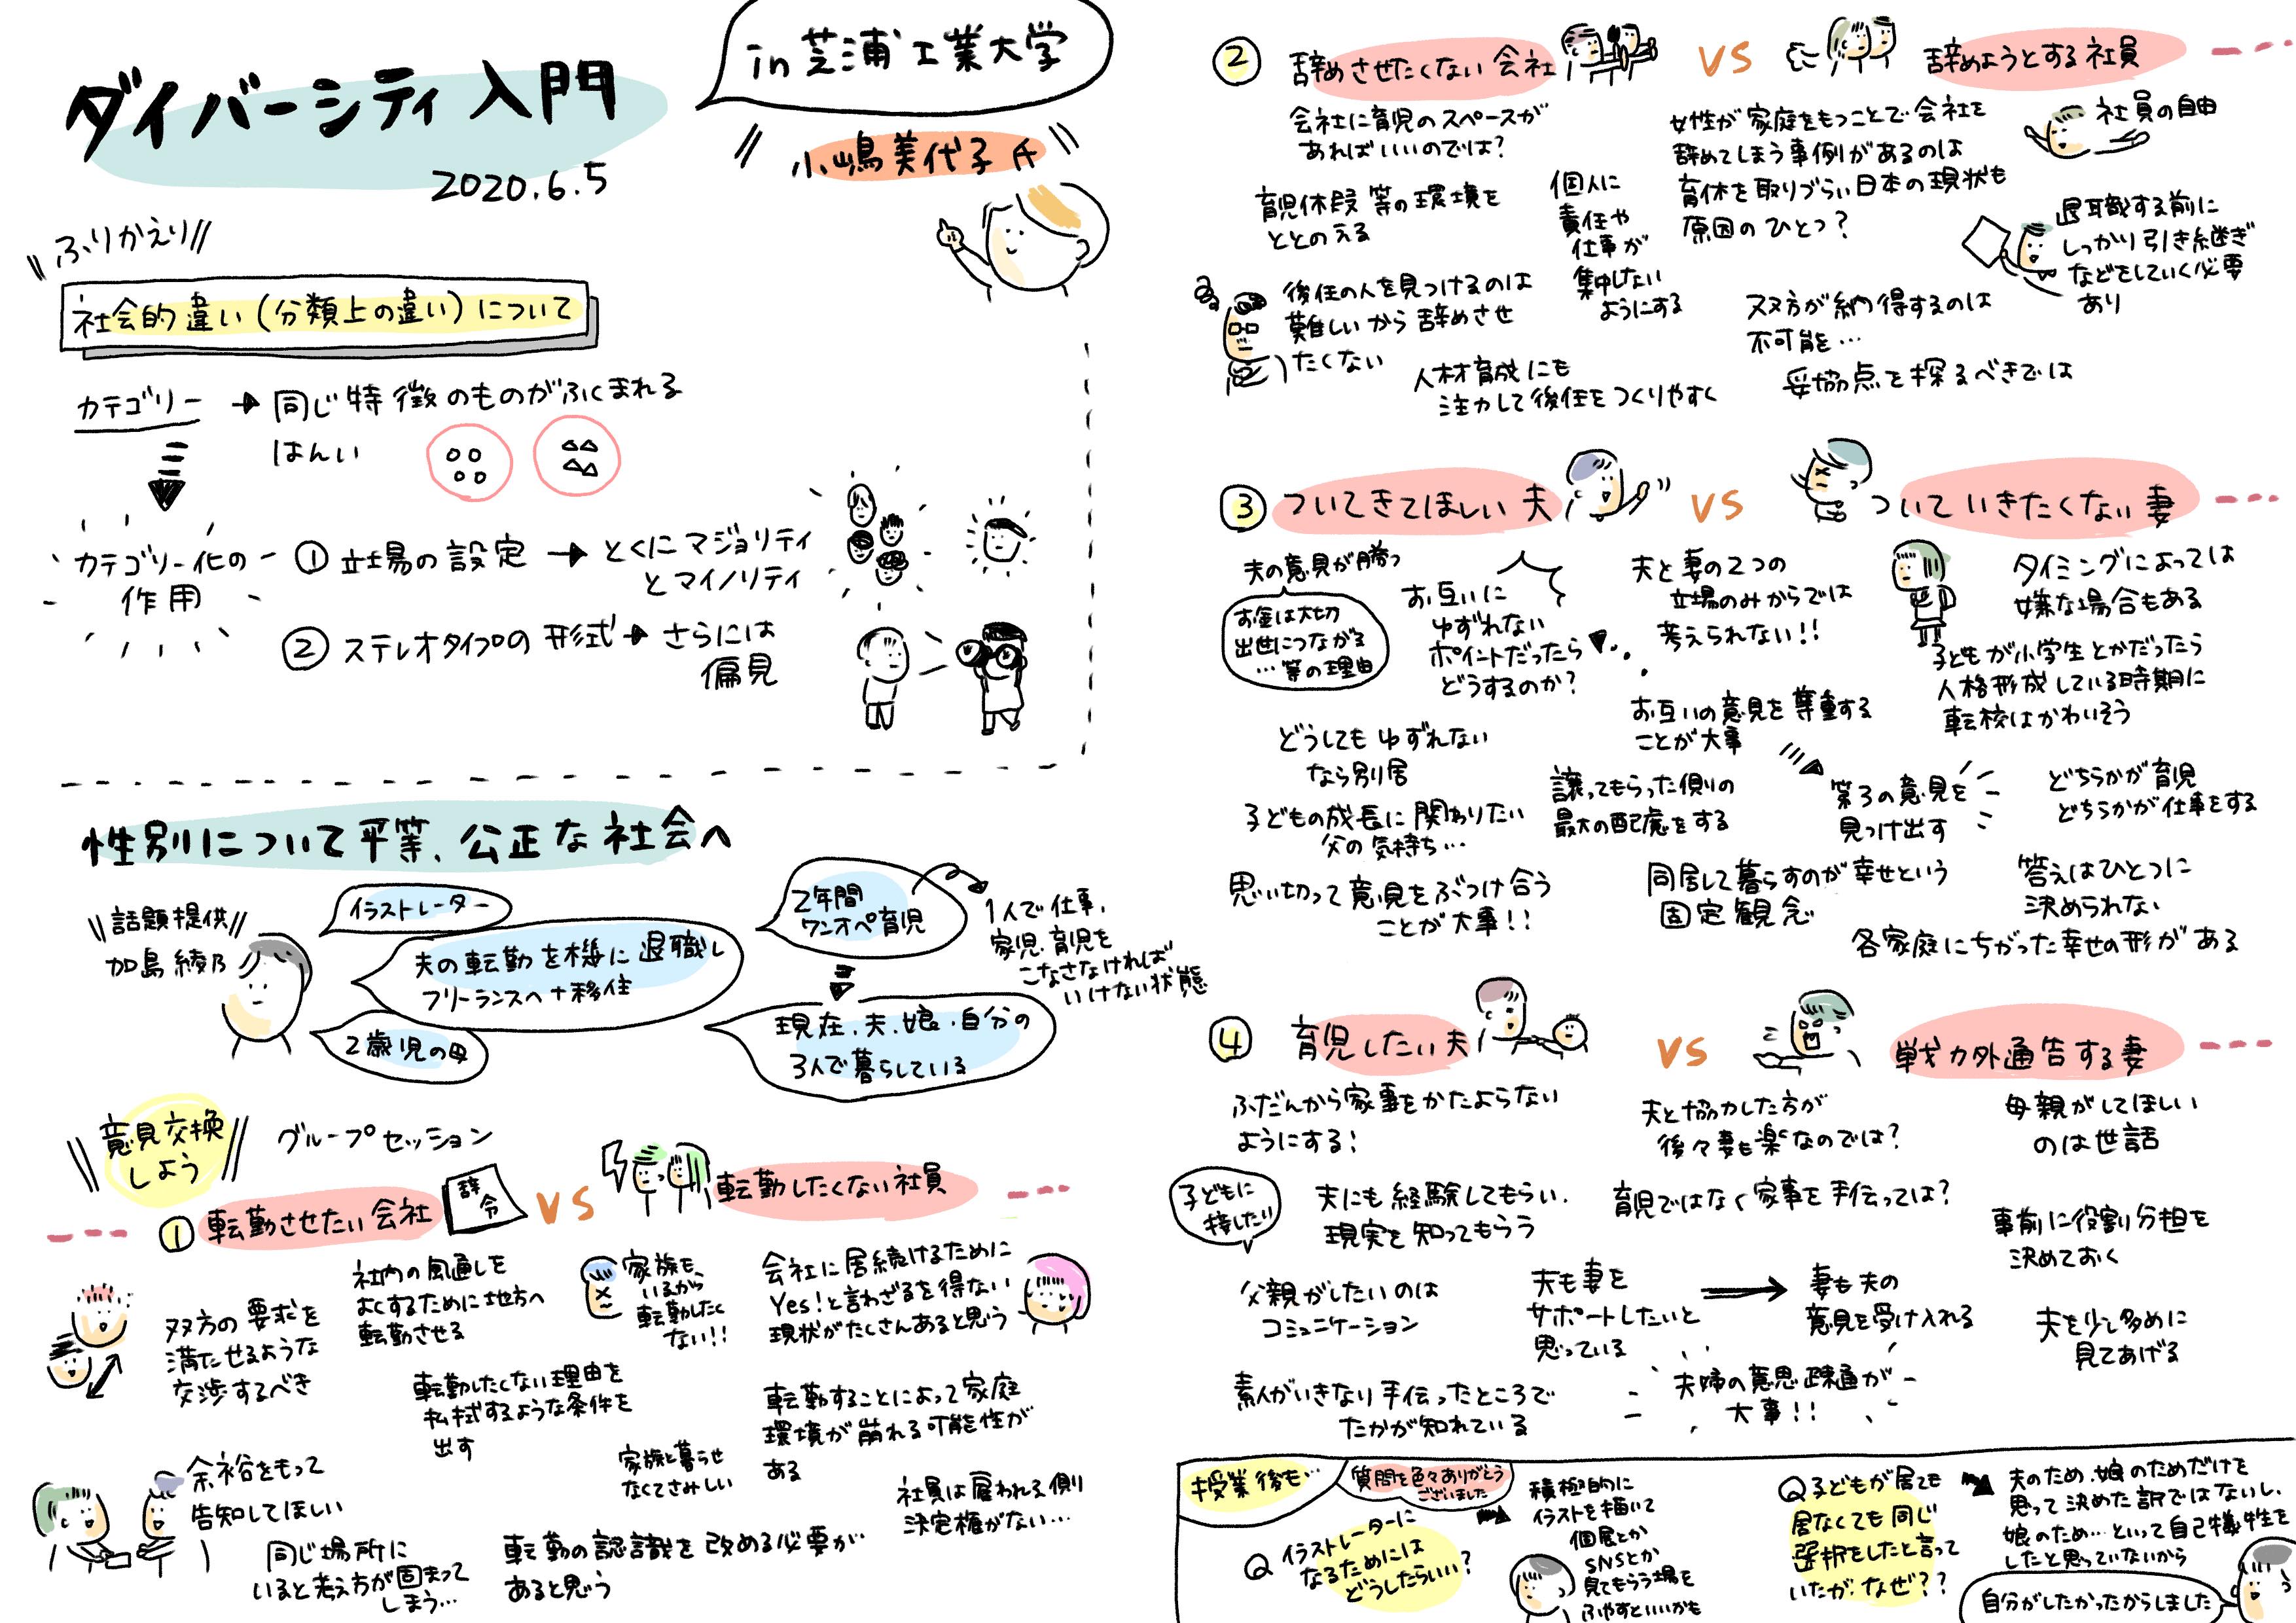 ダイバーシティ入門
2020.6.5
in 芝浦工業大学
小嶋美代子氏
ふりかえり
社会的違い(分類上の違い)について
カテゴリー → 同じ特徴のものがふくまれる
はんい
カテゴリー化の
作用
① 立場の設定 → とくにマジョリティ
とマイノリティ
② ステレオタイプの形式 → さらには
偏見
性別について平等、公正な社会へ
話題提供
加島綾乃
イラストレーター
夫の転勤を機に退職し
フリーランスへ+移住
2歳児の母
2年間
ワンオペ育児
1人で仕事、
家児、育児を
こなさなければ
いけない状態
現在、夫、娘、自分の
3人で暮らしている
意見交換
しよう
グループセッション
① 転勤させたい会社
辞令
VS
転勤したくない社員
双方の要求を
満たせるような
交渉するべき
社内の風通しを
よくするために地方へ
転勤させる
家族も、
いるから
転勤したく
ない!!
会社に居続けるために
Yes!と言わざるを得ない
現状がたくさんあると思う
転勤したくない理由を
払拭するような条件を
出す
転勤することによって家庭
環境が崩れる可能性が
ある
余裕をもって
告知してほしい
家族と暮らせ
なくてさみしい
社員は雇われる側
決定権がない…
同じ場所に
いると考え方が固まって
しまう…
転勤の認識を改める必要が
あると思う
② 辞めさせたくない会社
VS
辞めようとする社員
会社に育児のスペースが
あればいいのでは?
女性が家庭をもつことで会社を
辞めてしまう事例があるのは
育休を取りづらい日本の現状も
原因のひとつ?
社員の自由
育児休暇等の環境を
ととのえる
個人に
責任や
仕事が
集中しない
ようにする
退職する前に
しっかり引き継ぎ
などをしていく必要
あり
後任の人を見つけるのは
難しいから辞めさせ
たくない
双方が納得するのは
不可能…
人材育成にも
注力して後任をつくりやすく
妥協点を探るべきでは
③ ついてきてほしい夫
VS
ついていきたくない妻
夫の意見が勝つ
お金は大切
出世につながる
…等の理由
お互いに
ゆずれない
ポイントだったら
どうするのか?
夫と妻の2つの
立場のみからでは
考えられない!!
タイミングによっては
嫌な場合もある
子どもが小学生とかだったら
人格形成している時期に
転校はかわいそう
どうしてもゆずれない
なら別居
お互いの意見を尊重する
ことが大事
子どもの成長に関わりたい
父の気持ち…
譲ってもらった側の
最大の配慮をする
第3の意見を
見つけ出す
どちらかが育児
どちらかが仕事をする
思い切って意見をぶつけ合う
ことが大事!!
同居して暮らすのが幸せという
固定観念
答えはひとつに
決められない
各家庭にちがった幸せの形がある
④ 育児したい夫
VS
戦力外通告する妻
ふだんから家事をかたよらない
ようにする!
夫と協力した方が
後々妻も楽なのでは?
母親がしてほしい
のは世話
子どもに
接したい
夫にも経験してもらい、
現実を知ってもらう
育児ではなく家事を手伝っては?
事前に役割分担を
決めておく
父親がしたいのは
コミュニケーション
夫も妻を
サポートしたいと
思っている
→
妻も夫の
意見を受け入れる
夫を少し多めに
見てあげる
素人がいきなり手伝ったところで
たかが知れている
夫婦の意思疎通が
大事!!
授業後も…
質問を色々ありがとう
ございました
Q イラストレーターに
なるためには
どうしたらいい?
積極的に
イラストを描いて
個展とか
SNSとか
見てもらう場を
ふやすといいかも
Q 子どもが居ても
居なくても同じ
選択をしたと言って
いたが、なぜ??
夫のため、娘のためだけを
思って決めた訳ではないし、
娘のため…といって自己犠牲を
したと思っていないから
自分がしたかったからしました